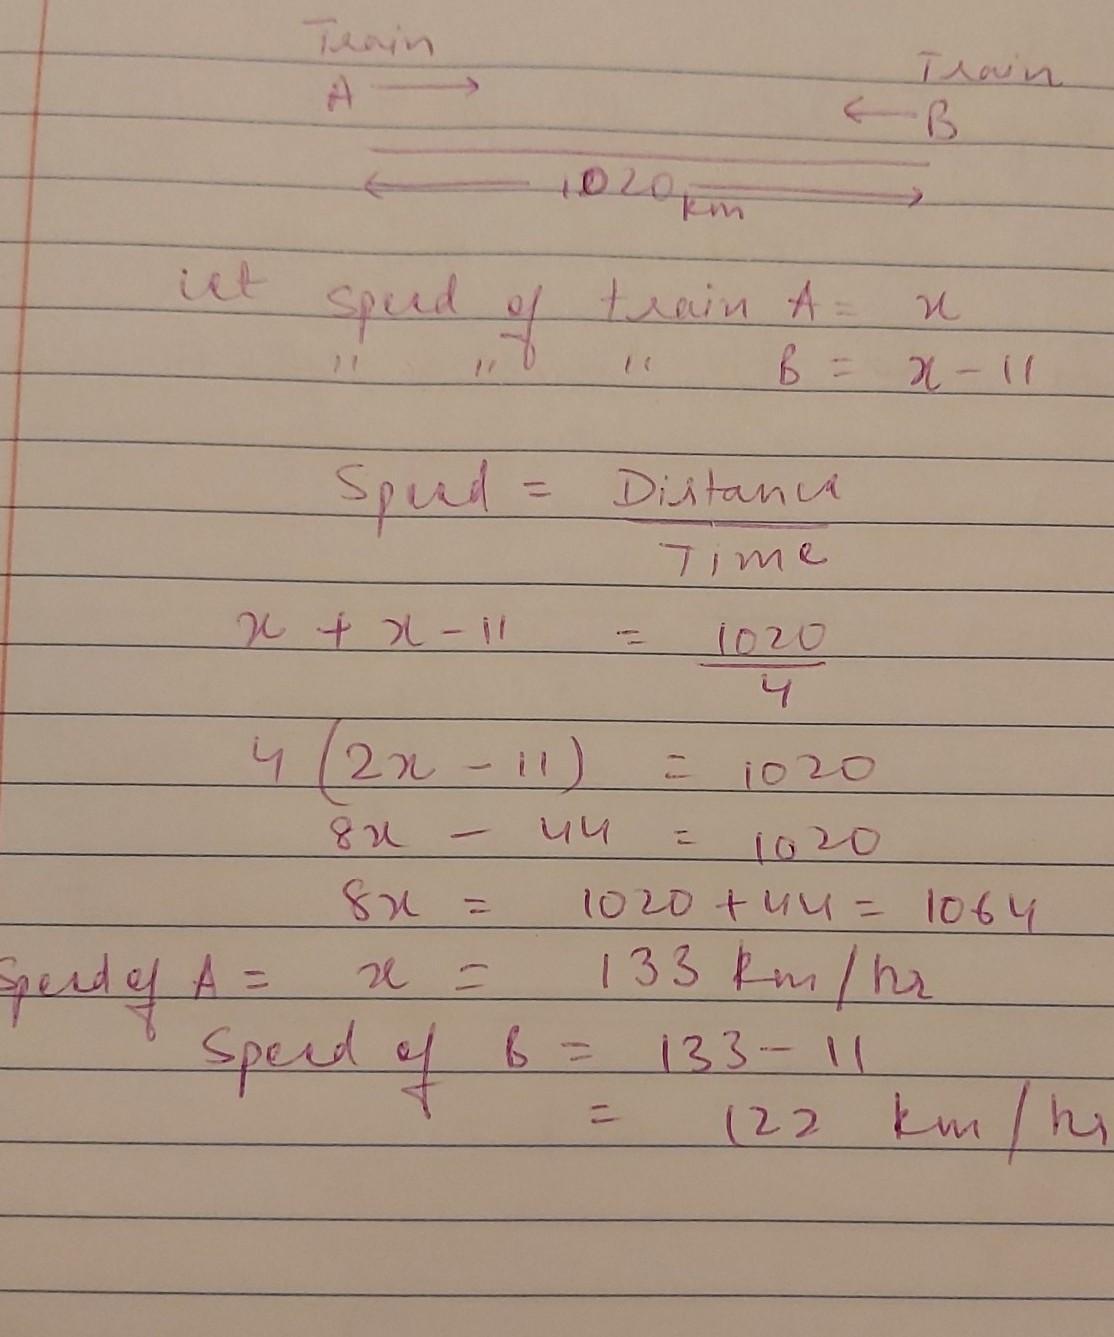 Train
Train
A →
← B
1020 km
let speed of train A = x
" " " B = x - 11
Speed = Distance
Time
x + x - 11 = 1020
4
4 (2x - 11) = 1020
8x - 44 = 1020
8x = 1020 + 44 = 1064
Speed of A = x = 133 km/hr
Speed of B = 133 - 11
= 122 km/hr